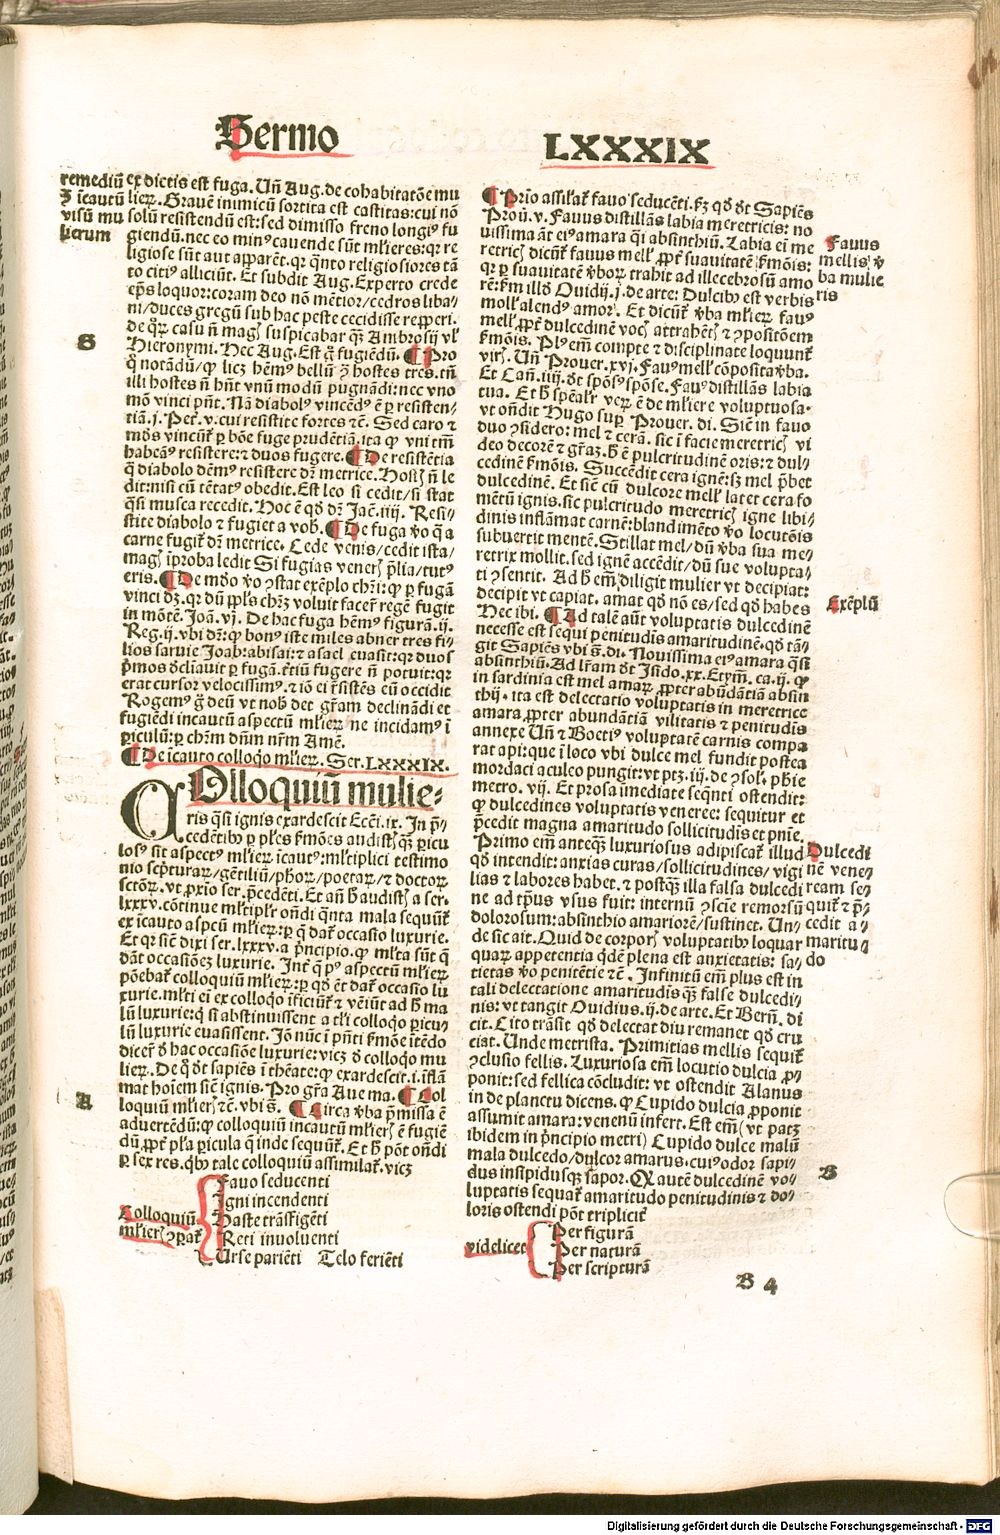 Sermo LXXXIX
remediũ
ꝫ ĩcautũ
visũ mu
lierum
ex dictis est fuga. Uñ Aug. de cohabitatõe mu
lieꝝ. Grauẽ inimicũ sortita est castitas: cui nõ
solũ resistendũ est: sed dimisso freno longiꝰ fu
giendũ. nec eo minꝰ cauende sũt mlieres: qꝛ re
ligiose sũt aut apparẽt. qꝛ qñto religiosiores tã
to citiꝰ alliciũt. Et subdit Aug. Experto crede
ep̃s loquor: coram deo nõ mẽtior/cedros liba-
ni/duces gregũ sub hac peste cecidisse repperi.
de qꝝ casu ñ magꝭ suspicabar qꝫ Ambrosij vl̕
Hieronymi. Hec Aug. Est g̃ fugiendũ. ¶ Pro
S
q̃ notãdũ/ꝙ licꝫ hẽmꝰ bellũ ꝯ̃ hostes tres. tñ
illi hostes ñ hñt vnũ modũ pugnãdi: nec vno
mõ vinci pñt. Nã diabolꝰ vincẽdꝰ ẽ ꝑ resisten-
tiã. j. Pet̃. v. cui resistite fortes ⁊c̃. Sed caro ⁊
mũdꝰ vincũt̃ ꝑ bõe fuge prudẽtiã. ita ꝙ vni tm̃
habeãꝰ resistere: ⁊ duos fugere. ¶ De resistẽtia
q̃ diabolo dẽmꝰ resistere dꝛ̃ metrice. Hostꝭ ñ le
dit: nisi cũ tẽtatꝰ obedit. Est leo si cedit/si stat
q̃si musca recedit. Hoc ẽ qd̕ dꝛ̃ Jac̃. iiij. Resi-
stite diabolo ⁊ fugiet a vob̕. ¶ De fuga v̕o q̃ a
carne fugit̃ dꝛ̃ metrice. Cede venis/cedit ista/
magꝭ iproba ledit Si fugias venerꝭ p̃lia/tutꝰ
eris. ¶ De mõ v̕o ꝯstat exẽplo chr̃i: ꝙ ꝑ fugã
vinci dꝫ. qꝛ dũ ppl̕s chr̃ꝫ voluit facer̃ regẽ fugit
in mõtẽ. Joã. vj. De hac fuga hẽmꝰ figurã. ij.
Reg. ij. vbi dꝛ̃: ꝙ bonꝰ iste miles abner tres fi-
lios saruie Joab: abisai: ⁊ asael euasit: qꝛ duos
p̃mos d̕clinauit ꝑ fugã. t̃tiũ fugere ñ potuit: qꝛ
erat cursor velocissimꝰ. ⁊ iõ ei r̃sistẽs eũ occidit
Rogemꝰ g̃ deũ vt nob̕ det gr̃am declinãdi et
fugiẽdi incautũ aspectũ mlieꝝ ne incidamꝰ ĩ
ꝑiculũ: ꝑ chr̃m dñm nr̃m Amẽ.
¶ De ĩcauto colloq̃o mlieꝝ. Ser. LXXXIX.
Colloquiũ mulie-
ris q̃si ignis exardescit Ecc̃i. ix. In p̃-
cedẽtibꝰ ꝑ pl̕es f̕mões audistꝭ qꝫ ꝑicu
losꝰ sit aspectꝰ mlieꝝ ĩcautꝰ: mltiplici testimo
nio sc̃pturaꝝ/gẽtiliũ/ph̕oꝝ/poetaꝝ/⁊ doctoꝝ
sctõꝝ. vt ꝓxio ser. p̃cedẽti. Et añ h̕ audistꝭ a ser.
lxxxv. cõtinue mltiplr̃ oñdi q̃nta mala sequũt̃
ex ĩcauto aspcũ mlieꝝ: ꝑ q̃ dat̃ occasio luxurie.
Et qꝛ sic̃ dixi ser. lxxxv. a p̃ncipio. ꝙ mlta sũt q̃
dãt occasiõeꝫ luxurie. Int̃ q̃ pꝰ aspectũ mlieꝝ
põebat̃ colloquiũ mlieꝝ: ꝑ qd̕ ẽt dat̃ occasio lu
xurie. mlti ei ex colloq̃o ificiũt̃ ⁊ vẽiũt ad h̕ ma
lũ luxurie: q̃ si abstinuissent a tl̕i colloq̃o ꝑicu-
lũ luxurie euasissent. Jõ nũc i pñti f̕mõe ĩtẽdo
dicer̃ d̕ hac occasiõe luxurie: vicꝫ d̕ colloq̃o mu
lieꝝ. De q̃ d̕t sapiẽs ĩ th̕eate: ꝙ exardescit. i. ĩflã
mat hoĩem sic̃ ignis. Pro gr̃a Aue ma. ¶ Col
A
loquiũ mlierꝭ ⁊c̃. vbi s̕. ¶ Circa v̕ba p̃missa ẽ
aduertẽdũ: ꝙ colloquiũ incautũ mlierꝭ ẽ fugiẽ
dũ ꝓpt̃ pl̕a ꝑicula q̃ inde sequũt̃. Et h̕ põt oñdi
ꝑ sex res. qb̕ꝰ tale colloquiũ assimilat̃. vicꝫ
Colloquiũ
mlierꝭ ꝯꝑat̃
Fauo seducenti
Igni incendenti
Haste trãsfigẽti
Reti inuoluenti
Urse pariẽti Telo feriẽti
¶ Prĩo assilat̃ fauo seducẽti. ẜm qd̕ d̕t Sapiẽs
Proũ. v. Fauus distillãs labia meretricis: no
uissima aũt eiꝰ amara q̃si absinthiũ. Labia ei̕ me
retricꝭ dicũt̃ fauus mell̕ ꝓpt̃ suauitatẽ f̕mõis:
qꝛ ꝑ suauitatẽ v̕boꝝ trahit ad illecebrosũ amo
rẽ: ẜm illd̕ Ouidij. j. de arte: Dulcibꝰ est verbis
moll̕ alendꝰ amor. Et dicũt̃ v̕ba mlieꝝ fauꝰ
mell̕ ꝓpt̃ dulcedinẽ vocꝭ attrahẽtꝭ ⁊ ꝯpositõem
f̕mõis. Plꝰ em̃ compte ⁊ disciplinate loquunt̃
virꝭ. Uñ Prouer. xvj. Fauꝰ mell̕ cõposita v̕ba.
Et Cañ. iiij. d̕t spõsꝰ spõse. Fauꝰ distillãs labia
tua. Et h̕ sp̃eal̕r verꝝ ẽ de mliere voluptuosa.
vt oñdit Hugo suꝑ Prouer. di. Sic̃ in fauo
duo ꝯsidero: mel ⁊ cerã. sic i facie meretricꝭ vi
deo decorẽ ⁊ gr̃aꝫ. h̕ ẽ pulcritudinẽ oris: ⁊ dul-
cedinẽ f̕mõis. Succẽdit cera ignẽ: sꝫ mel p̃bet
dulcedinẽ. Et sic̃ cũ dulcore mell̕ latet cera fo
mẽtũ ignis. sic pulcritudo meretricꝭ igne libi-
dinis inflãmat carnẽ: blandimẽto v̕o locutõis
subuertit mentẽ. Stillat mel/dũ v̕ba sua me-
retrix mollit. sed ignẽ accẽdit/dũ sue volupta-
ti ꝯsentit. Ad h̕ em̃ diligit mulier vt decipiat:
decipit vt capiat. amat qd̕ nõ es/sed qd̕ habes
Hec ibi. ¶ Ad talẽ aũt voluptatis dulcedinẽ
necesse est sequi penitudis amaritudinẽ. qd̕ tã-
git Sapiẽs vbi s̕. di. Nouissima eiꝰ amara q̃si
absinthiũ. Ad lr̃am d̕t Isid̕o. xx. Etym̃. ca. ij. ꝙ
in sardinia est mel amaꝝ ꝓpter abũdãtiã absin
thij. ita est delectatio voluptatis in meretrice
amara ꝓpter abundãtiã vilitatis ⁊ penitudis
annexe Uñ ⁊ Boetiꝰ voluptatẽ carnis compa
rat api: que i loco vbi dulce mel fundit postea
mordaci aculeo pungit: vt ptꝫ. iij. de ꝯsol. ph̕ie
metro. vij. Et prosa ĩmediate seq̃nti ostendit:
ꝙ dulcedines voluptatis veneree: sequitur et
p̃cedit magna amaritudo sollicitudis et pñie.
Primo em̃ anteqꝫ luxuriosus adipiscat̃ illud
qd̕ intendit: anxias curas/sollicitudines/vigi
lias ⁊ labores habet. ⁊ postqꝫ illa falsa dulcedi
ne ad tp̃us vsus fuit: internũ ꝯsciẽ remorsũ
dolorosum: absinthio amariorẽ/sustinet. Un-
de sic ait. Quid de corporꝭ voluptatibꝰ loquar
quaꝝ appetentia qdẽ plena est anxietatis: sa-
tietas v̕o penitẽtie ⁊c̃. Infinitũ em̃ plus est in
tali delectatione amaritudis qꝫ false dulcedi-
nis: vt tangit Ouidius. ij. de arte. Et Berñ. di
cit. Cito trãsit qd̕ delectat diu remanet qd̕ cru
ciat. Unde metrista. Primitias mellis sequit̃
ꝯclusio fellis. Luxuriosa em̃ locutio dulcia ꝓ-
ponit: sed fellica cõcludit: vt ostendit Alanus
in de planctu dicens. ꝙ Cupido dulcia ꝓponit
assumit amara: venenũ infert. Est em̃ (vt patꝫ
ibidem in p̃ncipio metri) Cupido dulce malũ
mala dulcedo/dulcor amarus. cuiꝰ odor sapi-
dus insipidusqꝫ sapor. Qꝛ autẽ dulcedinẽ vo-
luptatis sequat̃ amaritudo penitudinis ⁊ do-
loris ostendi põt tripliciť
videlicet
Per figurã
Per naturã
Per scripturã
Fauus
mellis v̕
ba mulie
ris
Exẽplũ
Dulcedi
nẽ vene-
ream se-
quit̃ ⁊ p̃-
cedit a-
maritu
do
B
B 4
Digitalisierung gefördert durch die Deutsche Forschungsgemeinschaft - DFG